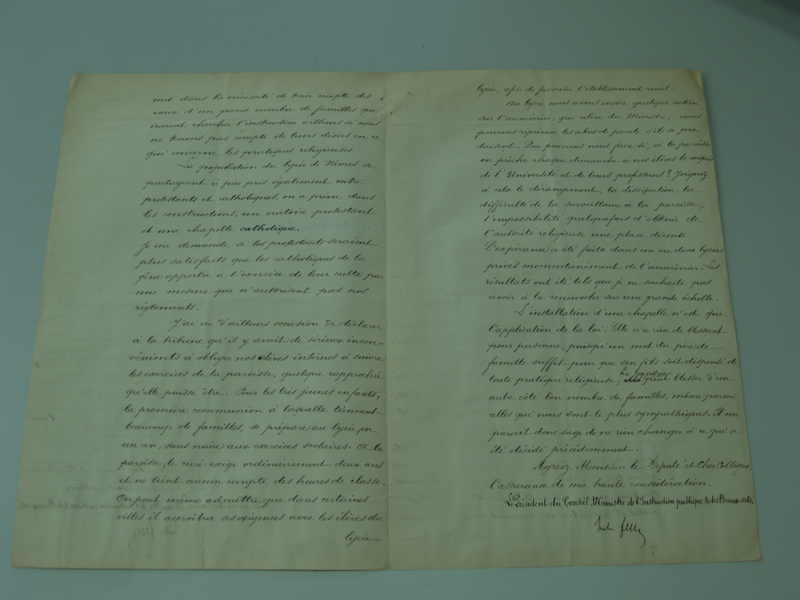 met dans la nécessité de tenir compte des
vœux d'un grand nombre de familles qui
iraient chercher l'instruction ailleurs si nous
ne tenons pas compte de leurs désirs en ce
qui concerne les pratiques religieuses.
La population du lycée de Nîmes se
partageant à peu près également entre
protestants et catholiques, on a prévu, dans
les constructions, un oratoire protestant
et une chapelle catholique.
Je me demande si les protestants seraient
plus satisfaits que les catholiques de la
gêne apportée à l'exercice de leur culte par
une mesure que n'autorisent pas nos
règlements.
J'ai eu d'ailleurs occasion de déclarer
à la tribune qu'il y avait de sérieux incon-
vénients à obliger nos élèves internes à suivre
les exercices de la paroisse, quelque rapprochée
qu'elle puisse être. Pour les très jeunes enfants,
la première communion à laquelle tiennent
beaucoup de familles, se prépare au lycée, en
un an, sans nuire aux exercices scolaires. A la
paroisse, le curé exige ordinairement deux ans
et ne tient aucun compte des heures de classe.
On peut même admettre que dans certaines
villes il accroîtra ses exigences avec les élèves du
lycée
lycée, afin de favoriser l'établissement rival.
Au lycée nous avons encore quelque action
sur l'aumônier, qui relève du Ministre, nous
pouvons réprimer les abus de parole s'il s'en pro-
duisent. Que pourrons nous faire si, à la paroisse
on prêche chaque dimanche à nos élèves le mépris
de l'Université et de leurs professeurs? Joignez
à cela le dérangement, la dissipation, la
difficulté de la surveillance à la paroisse,
l'impossibilité quelquefois d'obtenir de
l'autorité religieuse une place décente.
L'expérience a été faite dans un ou deux lycées
privés momentanément de l'aumônier. Les
résultats ont été tels que je ne souhaite pas
avoir à la renouveler sur une grande échelle.
L'installation d'une chapelle n'est que
l'application de la loi. Elle n'a rien de blessant
pour personne, puisqu'un mot du père de
famille suffit pour que son fils soit dispensé de
toute pratique religieuse, blesser d'un
autre côté bon nombre de familles, même parmi
celles qui nous sont le plus sympathiques. Il me
paraît donc sage de ne rien changer à ce qui a
été décidé précédemment.
Agréez, Monsieur le Député et Cher Collègue
l'assurance de ma haute considération.
Le Président du Conseil, Ministre de l'Instruction publique et des Beaux-arts,
Jules Ferry